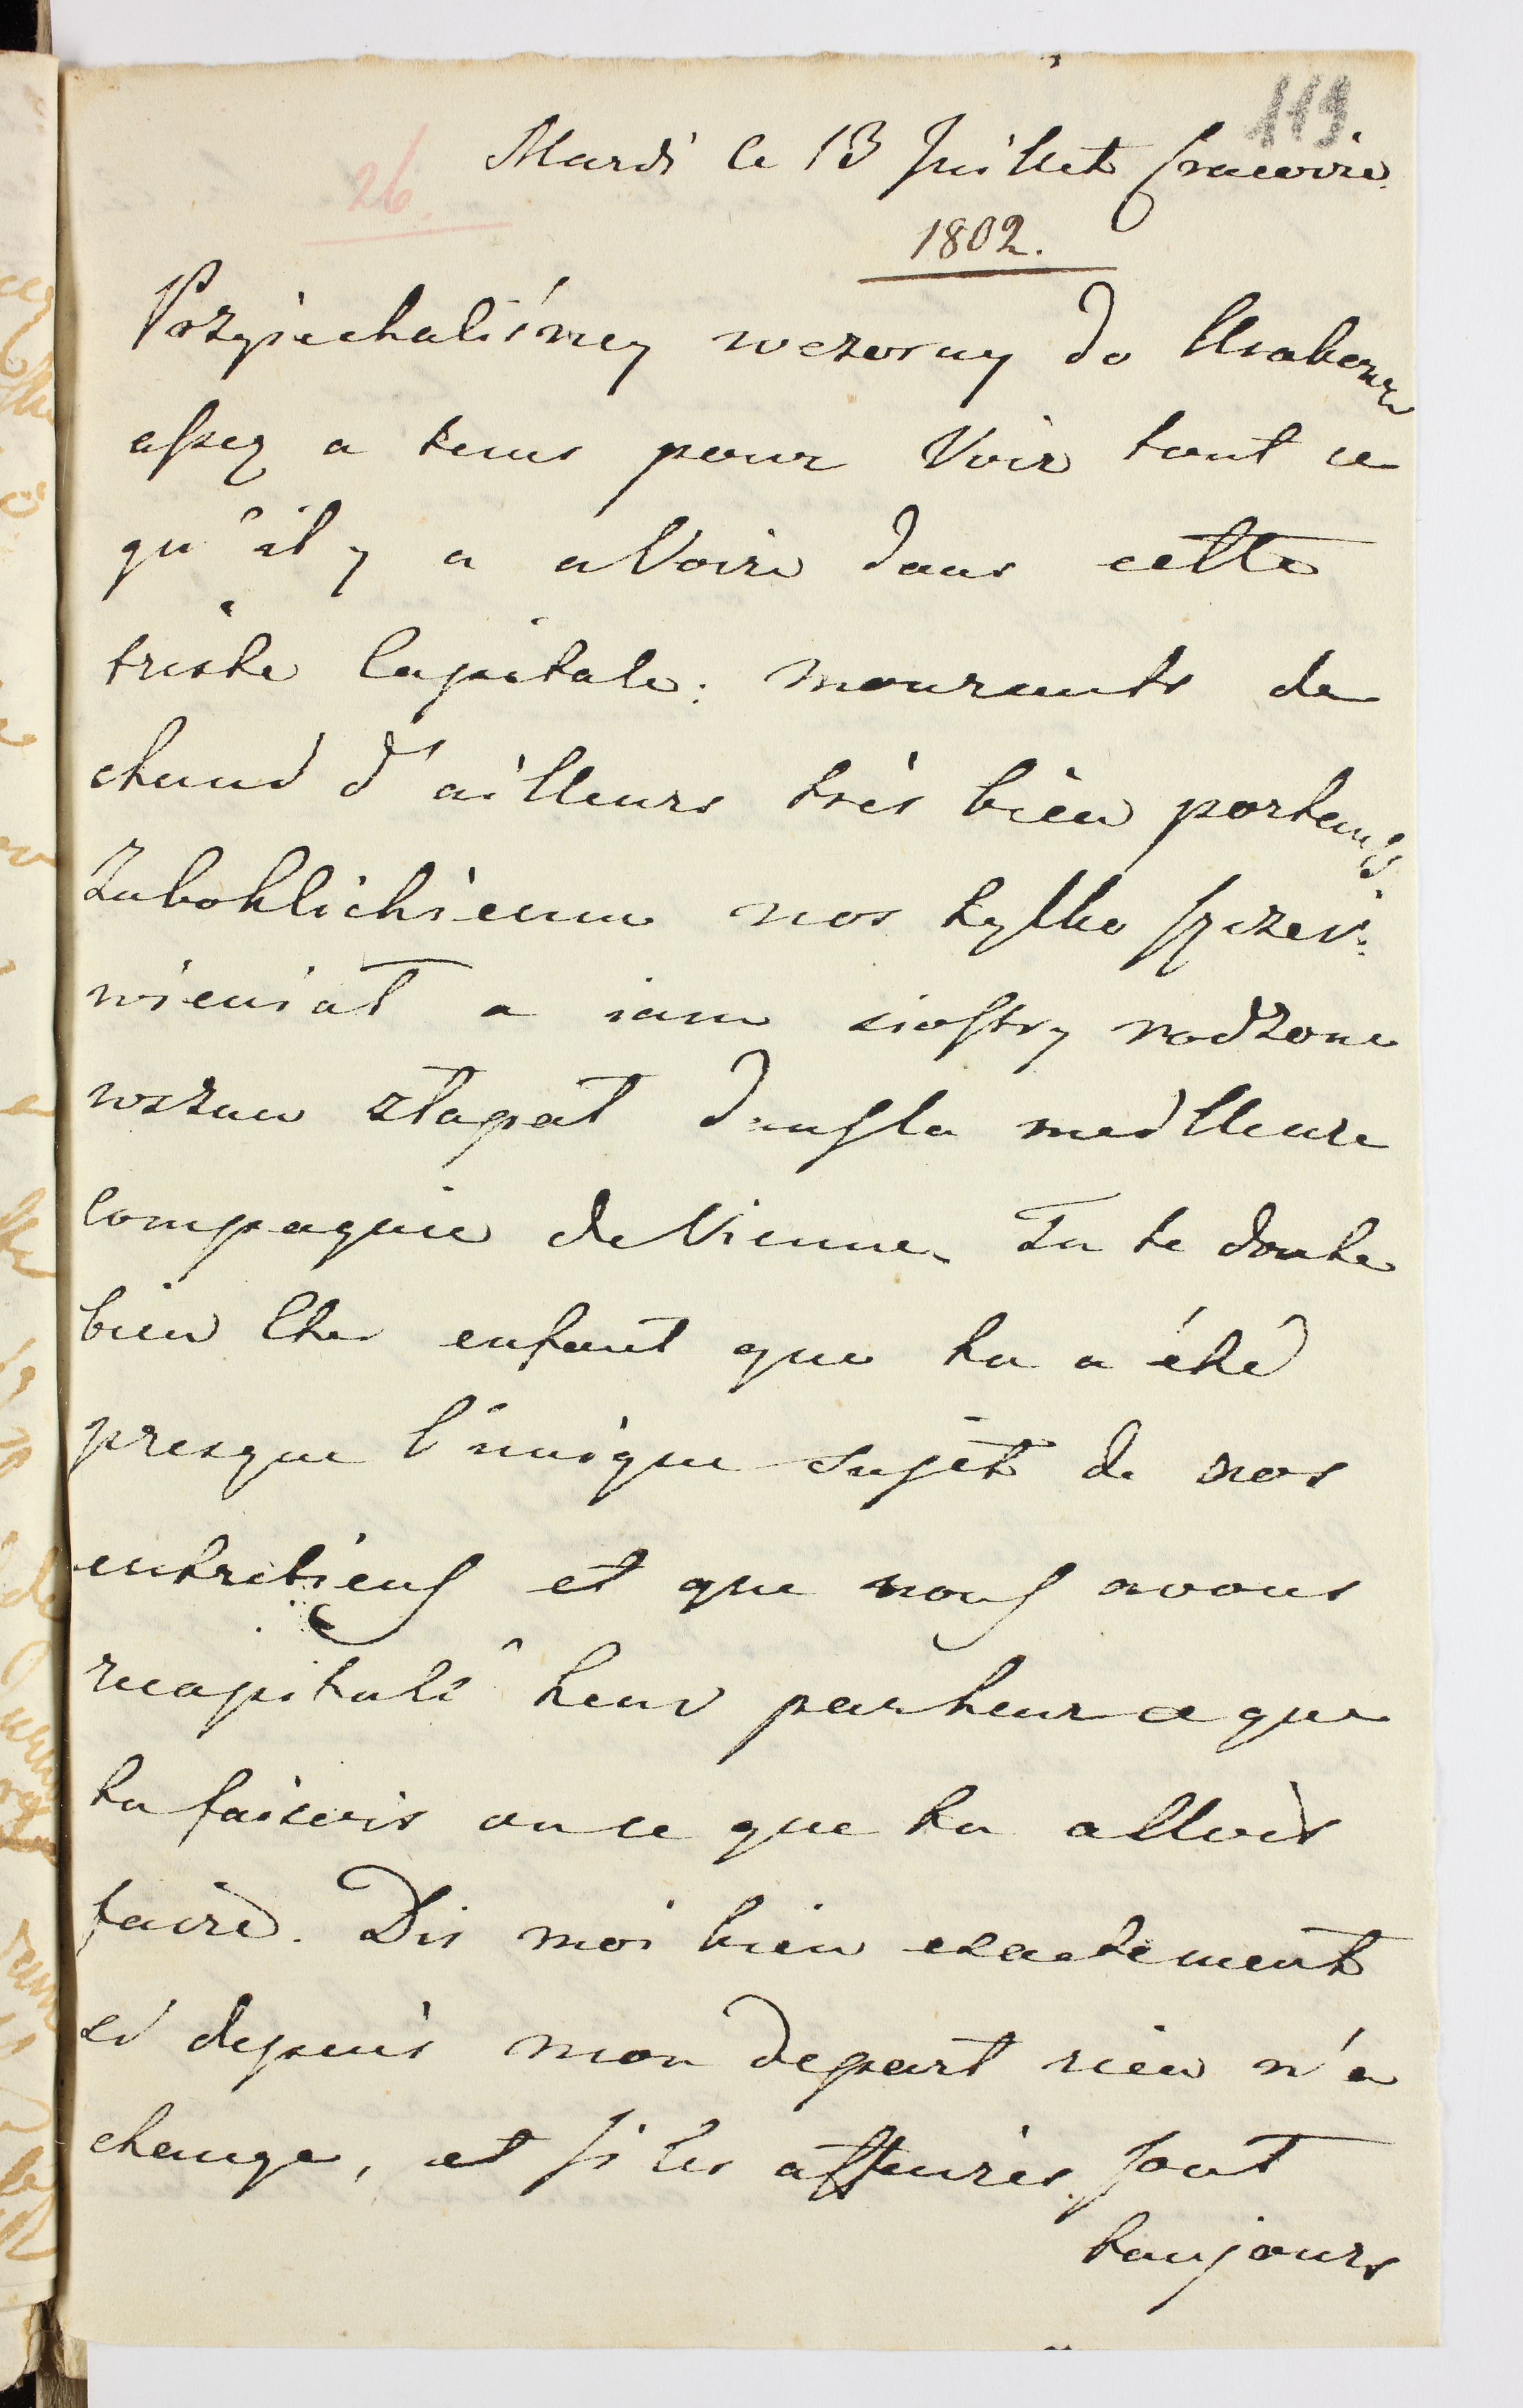 119
26.
Mardi le 13 Juillet Cracovie.
1802.
Przyjechaliśmy wczoray do Krakowa
assez a tems pour Voir tout ce
qu'il y a a Voire dans cette
triste Capitale: mourants de
chaud d'ailleurs très bien portants.
nos tylko
a iam siostry rodzone
złapał dans la meilleure
Compagnie de Vienne. Tu te doute
bien Cher enfant que tu a été
presque l'unique sujet de nos
entretiens et que nous avons
recapitulé heur par heur ce que
tu faisois ou ce que tu allois
faire. Dis moi bien exactement
si depuis mon depart rien n'a
change, et si les affaires sont
toujours